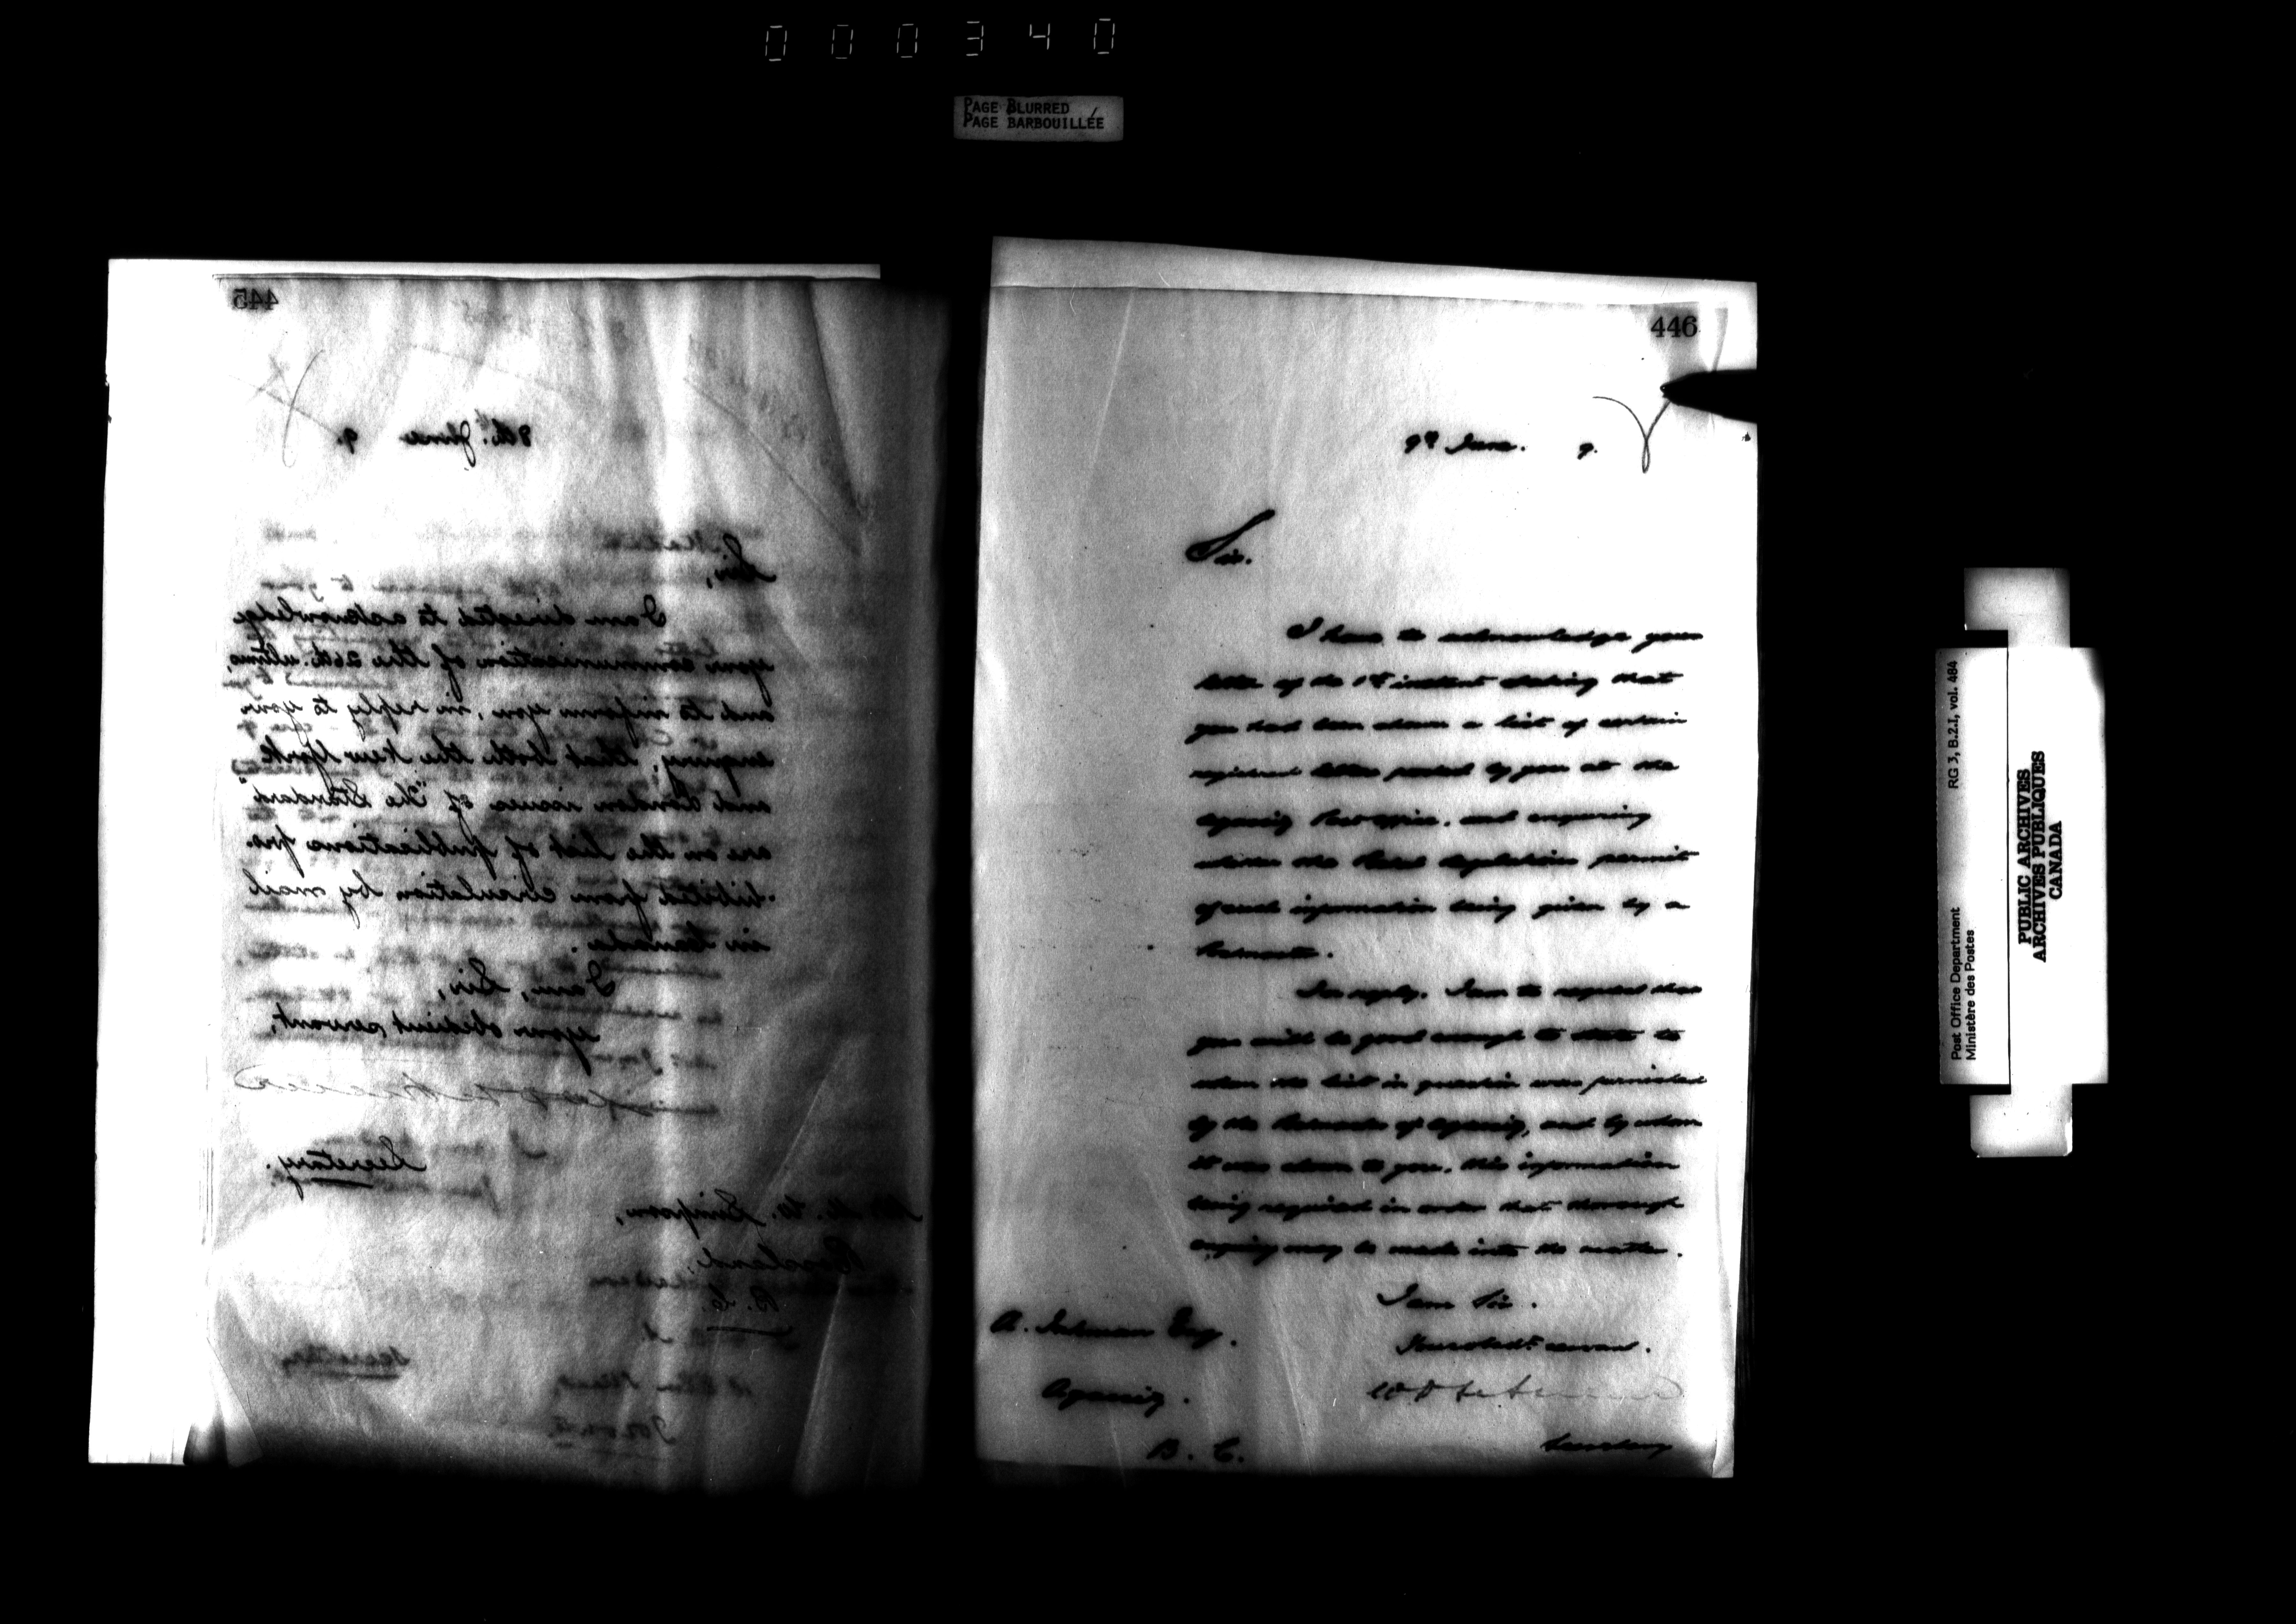 000340
PAGE BLURRED
PAGE BARBOUILLÉE
445
8th. June 9.
Sir,
I am directed to acknowledge
your communication of the 26th. ultimo,
and to inform you, in reply to your
enquiry, that both the New York
and London issues of "The Standard"
are on the list of publications pro-
-hibited from circulation by mail
in Canada.
I am, Sir,
your obedient servant,
Secretary.
W. Simpson,
Rossland,
B. C.
Secretary
Toronto
446
9th June. 9.
Sir.
I have to acknowledge your
letter of the 1st instant stating that
you had been shown a list of certain
registered letters posted by you at the
Agassiz Post Office. and enquiring
whether the Postal Regulations permit
of such information being given by a
Postmaster.
In reply. I am to request that
you will be good enough to state to
whom the list in question was furnished
by the Postmaster of Agassiz, and by whom
it was shown to you, this information
being required in order that thorough
enquiry may be made into the matter.
I am Sir.
Your obedt. servant.
Secretary
A. Esq.
Agassiz.
B. C.
Post Office Department RG 3, B.2.I, vol. 484
Ministère des Postes
PUBLIC ARCHIVES
ARCHIVES PUBLIQUES
CANADA